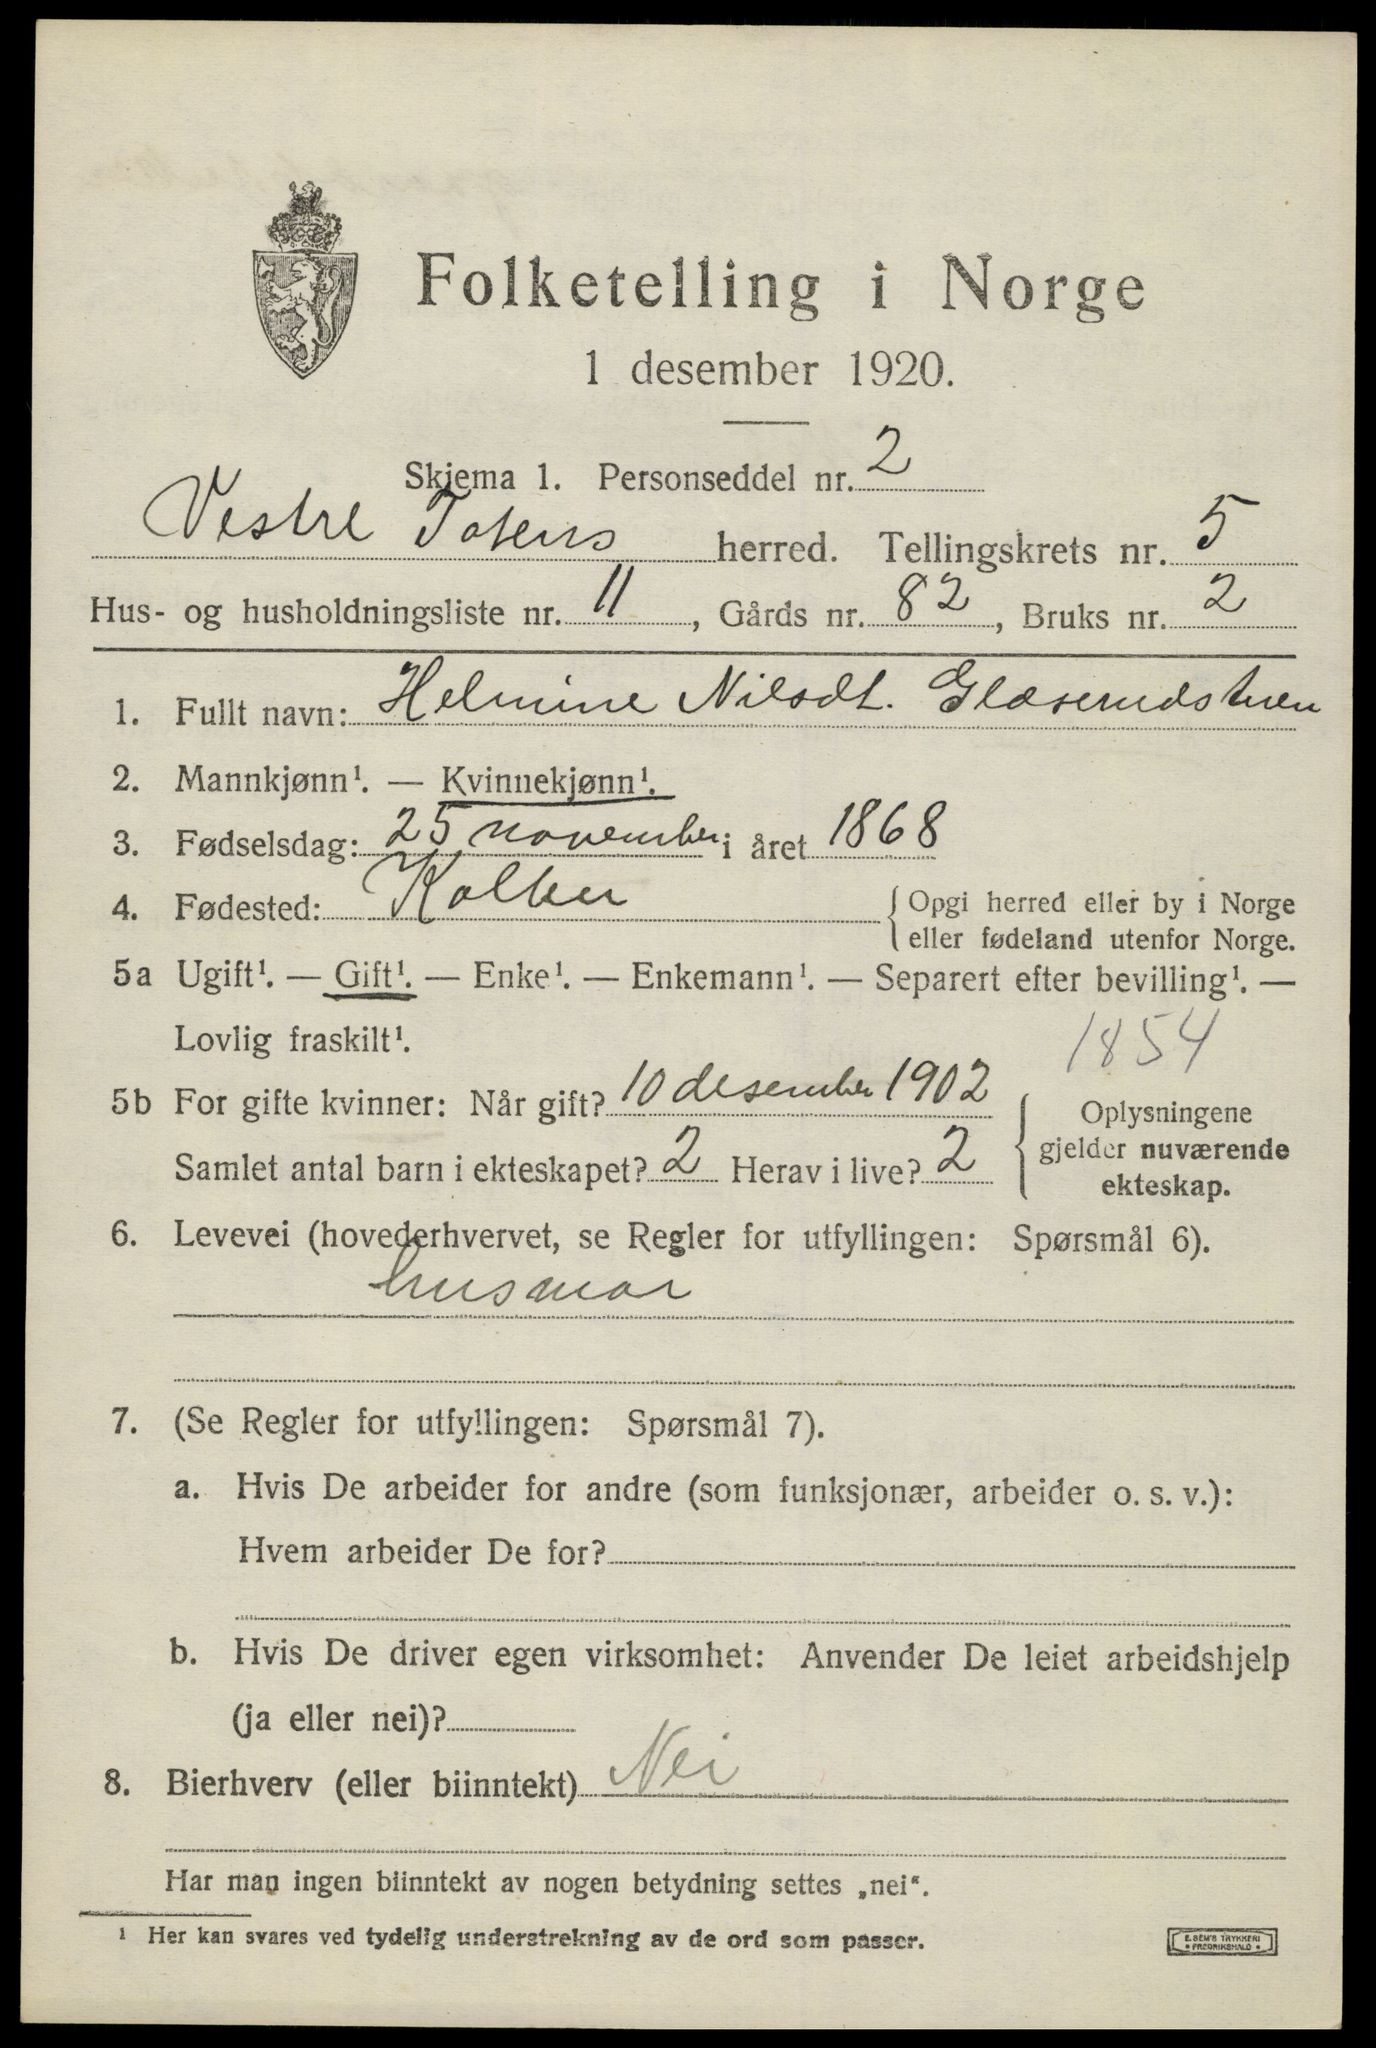 Folketelling i Norge
1 desember 1920.
Skjema 1. Personseddel nr. 2
Vestre Totens herred. Tellingskrets nr. 5
Hus- og husholdningsliste nr. 11, Gårds nr. 82, Bruks nr. 2
1. Fullt navn: Helmine Nilsdt. Glæserudstuen
2. Mannkjønn¹. — Kvinnekjønn¹.
3. Fødselsdag: 25 november i året 1868
4. Fødested: Kolbu { Opgi herred eller by i Norge
eller fødeland utenfor Norge.
5a Ugift¹. — Gift¹. — Enke¹. — Enkemann¹. — Separert efter bevilling¹. —
Lovlig fraskilt¹.
1854
5b For gifte kvinner: Når gift? 10 desember 1902
Samlet antal barn i ekteskapet? 2 Herav i live? 2
{ Oplysningene
gjelder nuværende
ekteskap.
6. Levevei (hovederhvervet, se Regler for utfyllingen: Spørsmål 6).
husmor
7. (Se Regler for utfyllingen: Spørsmål 7).
a. Hvis De arbeider for andre (som funksjonær, arbeider o. s. v.):
Hvem arbeider De for?
b. Hvis De driver egen virksomhet: Anvender De leiet arbeidshjelp
(ja eller nei)?
8. Bierhverv (eller biinntekt) Nei
Har man ingen biinntekt av nogen betydning settes „nei“.
¹ Her kan svares ved tydelig understrekning av de ord som passer.
E. SEM'S TRYKKERI
• FREDRIKSHALD •